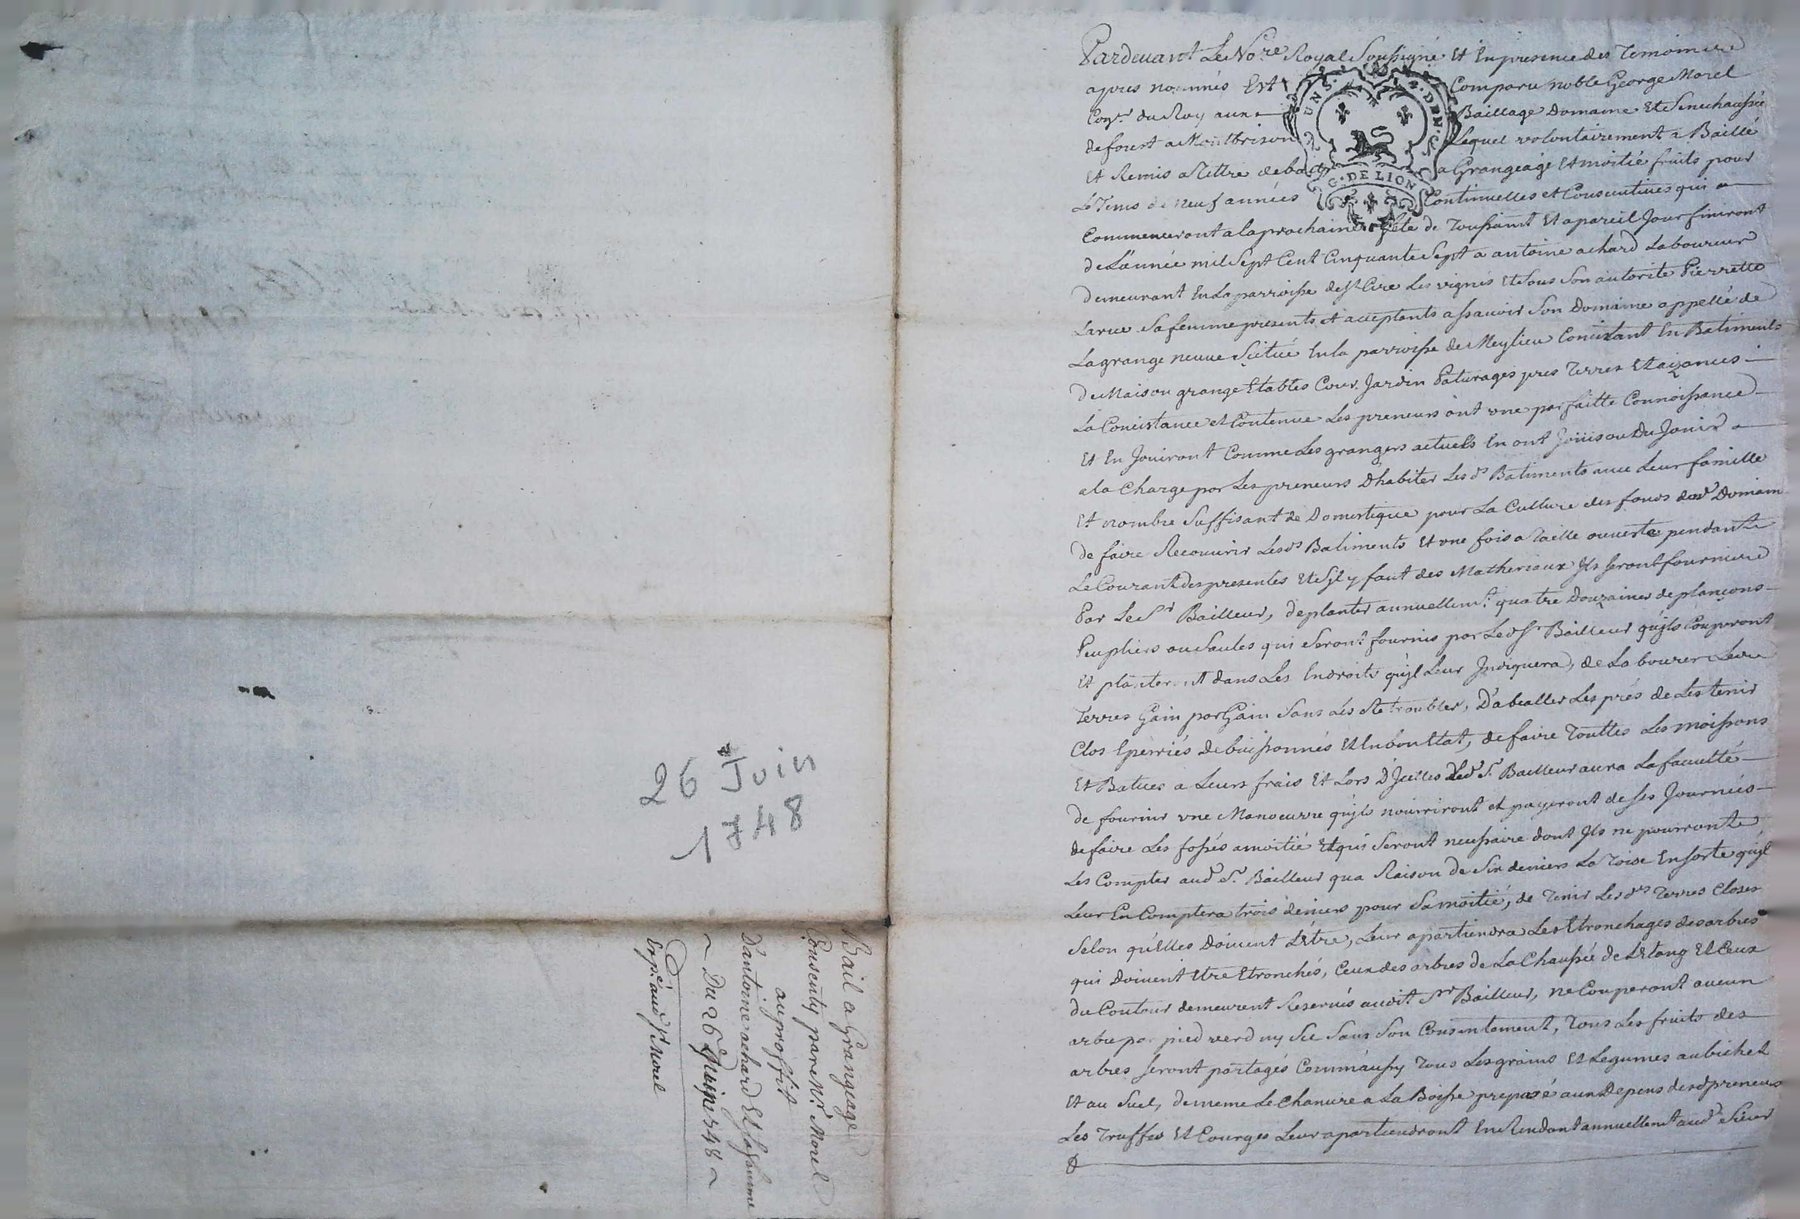 Pardevant Le No.re Royal Soussigné Et En presence des Temoins
apres nommés Est Comparu noble George Morel
Con.er du Roy aux Bailliage Domaine Et Senechaussée
de forest a Montbrison Lequel volontairement a Baillé
Et Remis a Tittre de bail a Grangeage Et moitié fruits pour
Le Tems de neuf années Continuelles et Consecutives qui
Commenceront a la prochaine fete de Toussaint Et a pareil Jour finiront
de L'année mil Sept Cent Cinquante Sept a antoine achard Laboureur
demeurant En La parroisse de St Cire Les vignes Et Sous Son autorité Pierrette
Larue Sa femme presents et acceptants assavoir Son Domaine appellé de
La grange neuve Scitué En la parroisse de Meylieu Concistant En Batiments
De Maison grange Etables Cour Jardin Paturages pres Terres Et aizances
La Concistance et Contenue Les preneurs ont une parfaitte Connoissance
Et En Jouiront Comme Les grangers actuels En ont Jouis ou Du Jouir
a la Charge par Les preneurs D'habiter Les d.s Batiments avec Leur famille
Et nombre Suffisant de Domestique pour La Culture des fonds dud. Domaine
de faire Recouvrir Lesd.s Batiments Et une fois a Taille ouverte pendant
Le Courant des presentes Et S'il y faut des Matheriaux Ils Seront fournis
Par Le S.r Bailleur, de planter annuellem.t quatre Douzaines de plançons
Peupliers ou Saules qui Seront fournis par Led. Sr Bailleur qu'ils Couperont
Et planteront dans Les Endroits qu'il Leur Indiquera, de Labourer Les
Terres Gain par Gain Sans Les troubler, D'abealler Les prés de Les tenir
Clos Epierriés debuissonnés Et En bon Etat, de faire Touttes Les moissons
Et Batues a Leurs frais Et Lors D'Icelles Led. S.r Bailleur aura La faculté
de fournir une Manoeuvre qu'ils nourriront et payeront de Ses Journées
de faire Les fossés a moitié Et qui Seront necessaire dont Ils ne pourront
Les Compter aud. S.r Bailleur qu'a Raison de Six deniers La Toise En Sorte qu'il
Leur En Comptera trois deniers pour Sa moitié, de Tenir Les d.s Terres Closes
Selon qu'Elles Doivent L'être, Leur apartiendra Les Etronchages des arbres
qui Doivent Etre Etronchés, Ceux des arbres de La Chaussée de L'Etang Et Ceux
du Contour demeurent Reservés audit S.r Bailleur, ne Couperont aucun
arbre par pied verd ny Sec Sans Son Consentement, Tous Les fruits des
arbres Seront partagés Comm'aussy Tous Les grains Et Legumes au bichet
Et au Suel, de meme Le Chanvre a La Boisse preparé aux Depens desd. preneurs
Les Truffes Et Courges Leur apartiendront En Rendant annuellem.t aud. Sieur
G. DE LION
26 Juin
1748
Bail a Grangeage
Consenty par Mr. Morel
au proffit
D'antoine achard Et Sa femme
Du 26 Juin 1748
Exp.é aud. Sr Morel